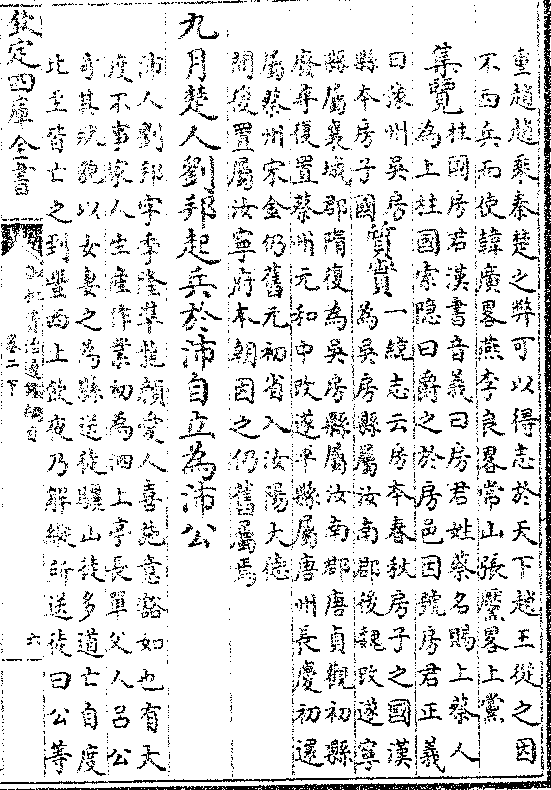 重趙趙乘秦楚之弊可以得志於天下趙王從之因
不西兵而使韓廣畧燕李良畧常山張黶畧上黨
集覽
柱國房君漢書音義曰房君姓蔡名賜上蔡人
為上柱國索隱曰爵之於房邑因號房君正義
曰豫州吳房
縣本房子國
質實
一統志云房本春秋房子之國漢
為吳房縣屬汝南郡後魏改遂寧
縣屬襄城郡隋復為吳房縣屬汝南郡唐貞觀初縣
廢尋復置蔡州元和中改遂平縣屬唐州長慶初還
屬蔡州宋金仍舊元初省入汝陽大德
間復置屬汝寧府本朝因之仍舊屬焉
九月楚人劉邦起兵於沛自立為沛公
沛人劉邦字季隆準龍顔愛人喜施意豁如也有大
度不事家人生產作業初為泗上亭長單父人呂公
奇其狀貌以女妻之為縣送徒驪山徒多道亡自度
比至皆亡之到豐西上飲夜乃解縱所送徒曰公等
欽定四庫全書
御批資治通鑑綱目
卷二下
六